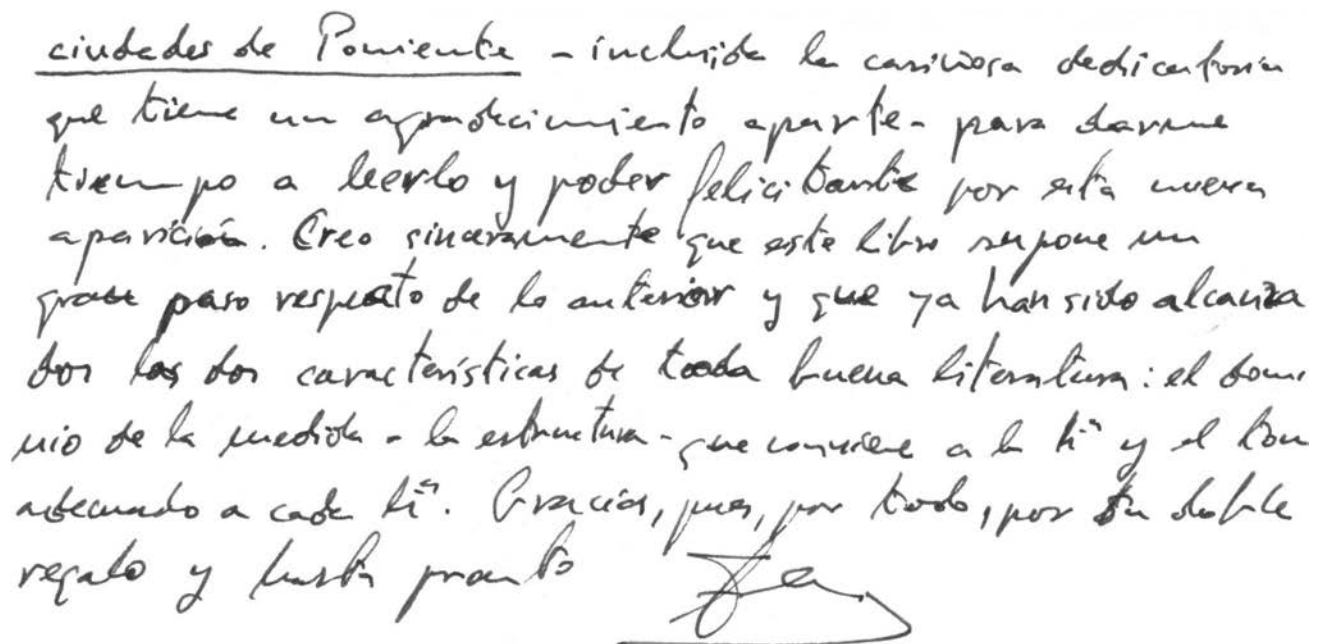 ciudades de Poniente - incluida la cariñosa dedicatoria
que tiene un agradecimiento aparte - para darme
tiempo a leerlo y poder felicitarte por esta nueva
aparición. Creo sinceramente que este libro supone un
gran paso respecto de lo anterior y que ya han sido alcanza
dos las dos características de toda buena literatura: el domi
nio de la medida - la estructura - que conviene a la hª y el tono
adecuado a cada hª. Gracias, pues, por todo, por tu doble
regalo y hasta pronto